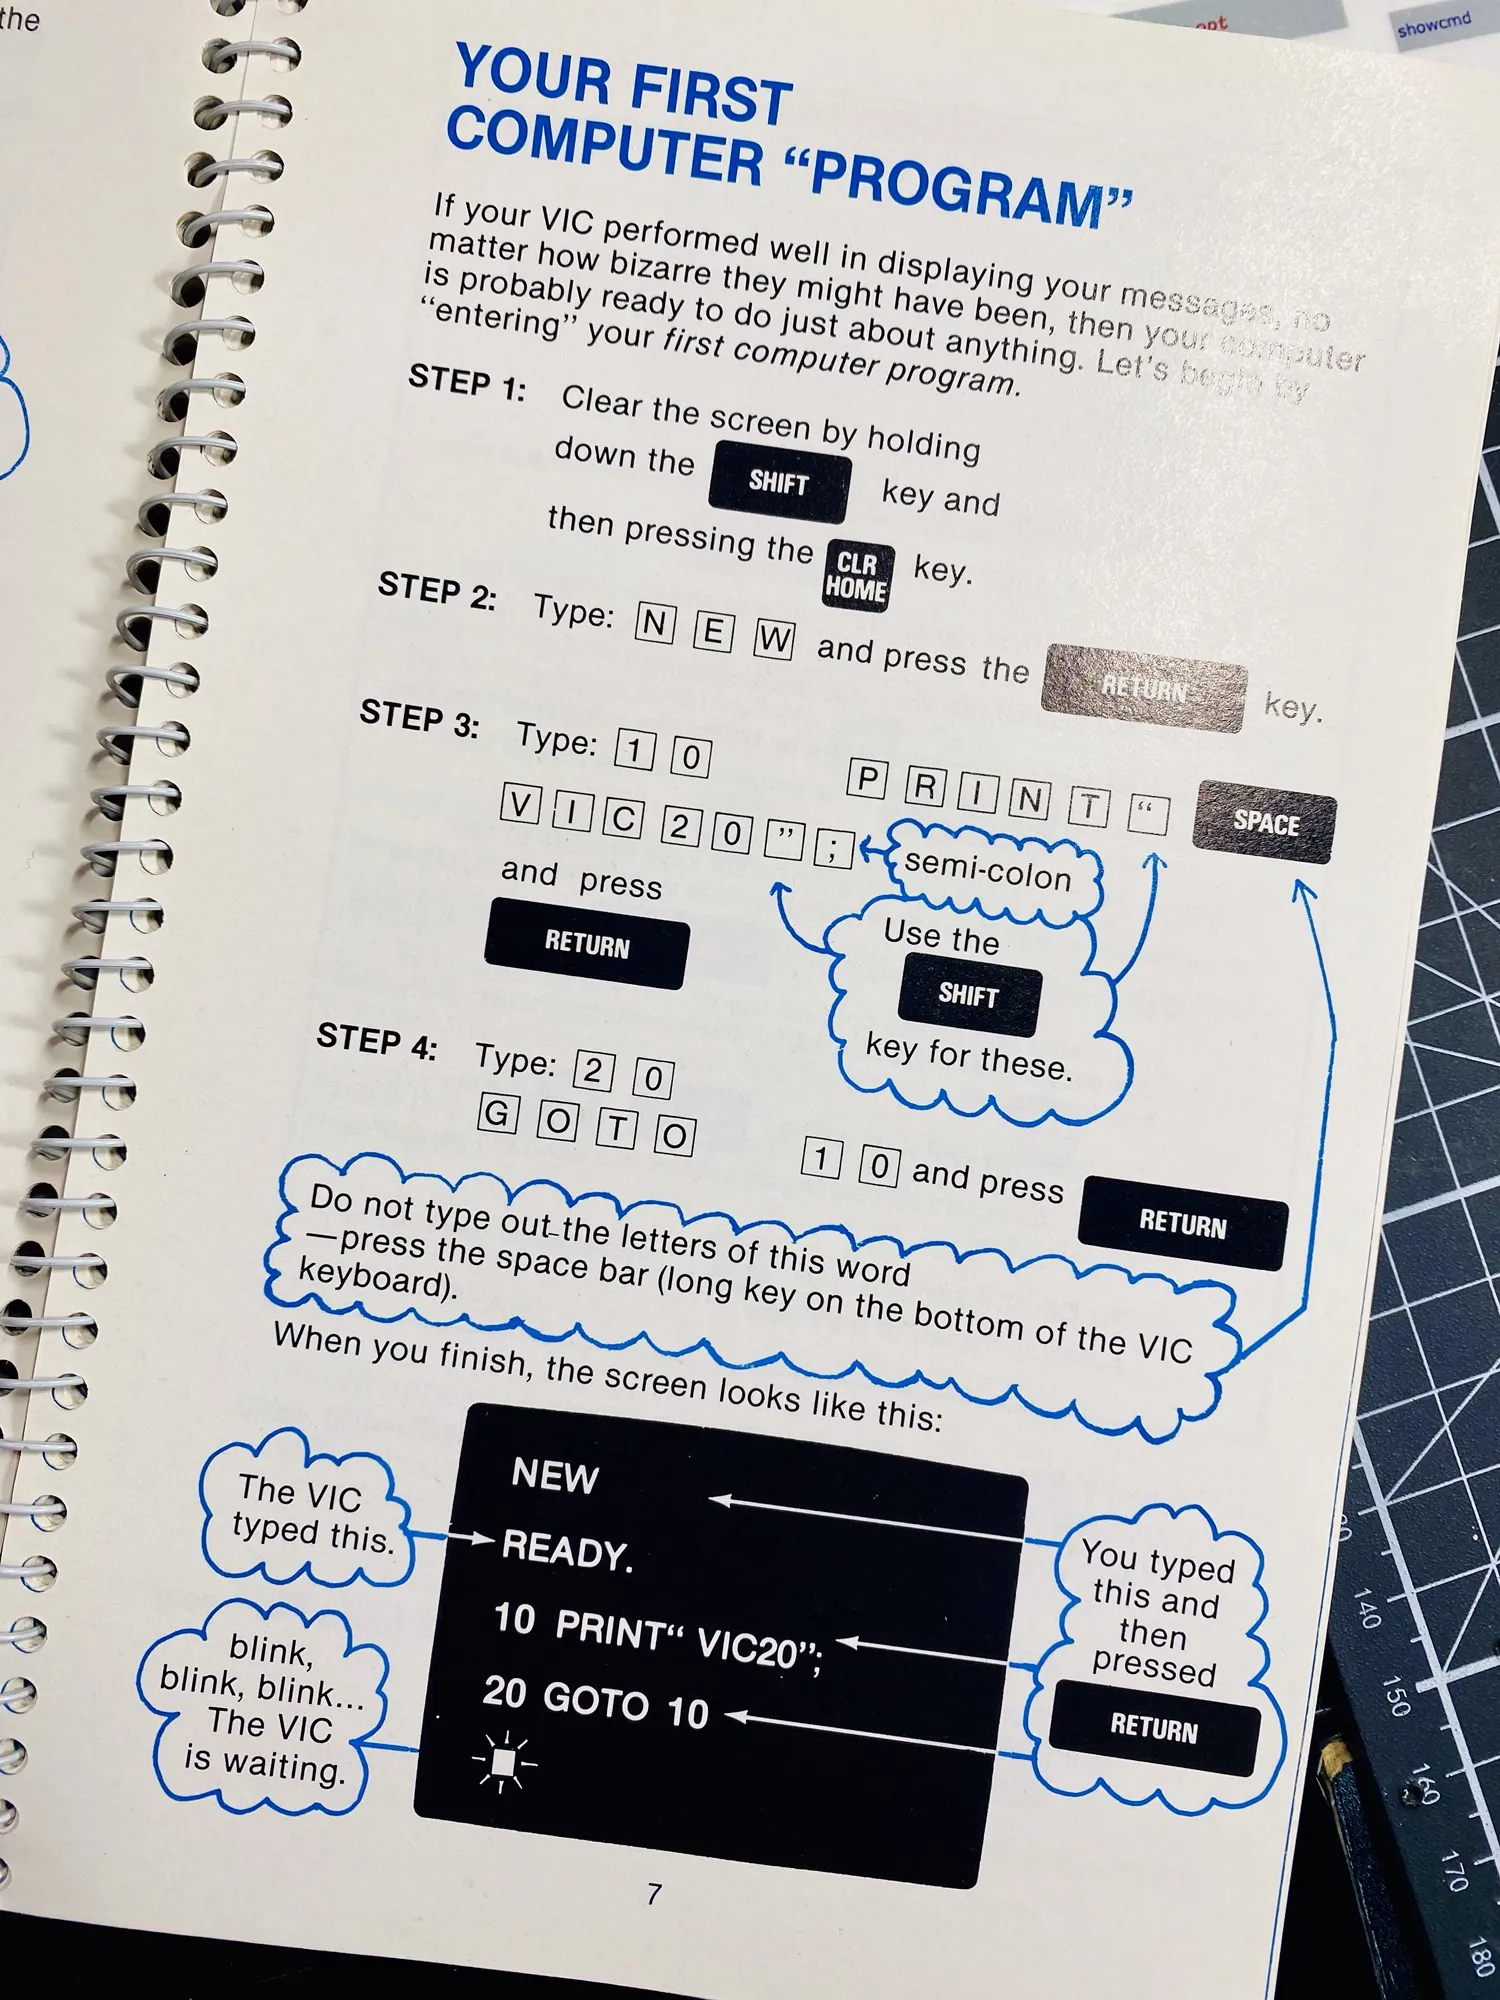 the
opt
showcmd
YOUR FIRST
COMPUTER “PROGRAM”
If your VIC performed well in displaying your messages, no
matter how bizarre they might have been, then your computer
is probably ready to do just about anything. Let's begin by
“entering” your first computer program.
STEP 1: Clear the screen by holding
down the SHIFT key and
then pressing the CLR HOME key.
STEP 2: Type: N E W and press the RETURN key.
STEP 3: Type: 1 0 P R I N T “ SPACE
V I C 2 0 ” ;
semi-colon
and press
RETURN
Use the
SHIFT
key for these.
STEP 4: Type: 2 0
G O T O 1 0 and press RETURN
Do not type out the letters of this word
—press the space bar (long key on the bottom of the VIC
keyboard).
When you finish, the screen looks like this:
The VIC
typed this.
blink,
blink, blink...
The VIC
is waiting.
NEW
READY.
10 PRINT“ VIC20”;
20 GOTO 10
You typed
this and
then
pressed
RETURN
7
140
150
160
170
180